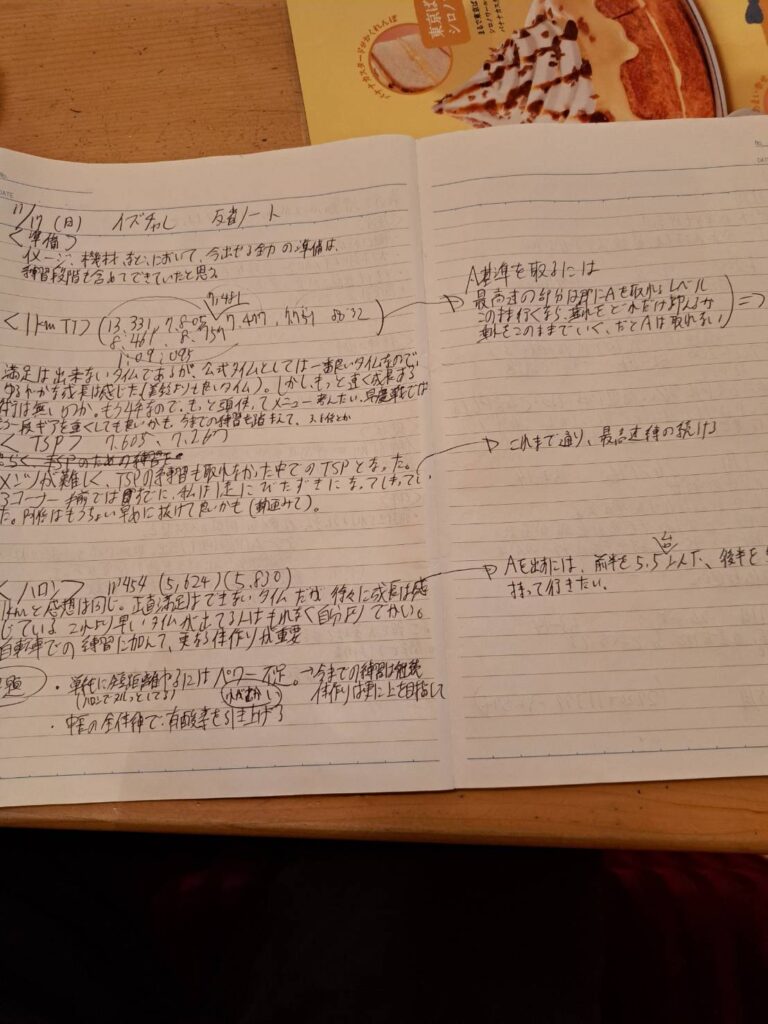 東京ば
シロノ
バナナカスタードがかくれんぼ
まるで東京ば
シロノワール
バナナカス
No.
DATE
11/17 (日) イズチャレ 反省ノート
<準備>
イメージ、機材、などにおいて、今出せる全力の準備は、
練習段階も含めてできていたと思う
<1km TT> (13,331 7,805 7,481 7,477
8,461 8,757
1;09;095
満足は出来ないタイムであるが、公式タイムとしては一番良いタイムなので、
ゆるやかな成長は感じた。しかし、もっと速く成長する
もう4年なので、もっと頭使ってメニュー考えたい。早慶戦では
もう一段ギアを重くしても良いかも。今までの練習も踏まえて、
<TSP> 7.605、7.267
メンツが難しく、TSPの練習も取れなかった中でのTSPとなった。
3コーナー手前では既に、私は1走にべたづきになってしまってい
た。内係はもうちょい早めに抜けて良いかも(動画みて)。
<ハロン> 11"454 (5,624)(5,830)
1kmと感想は同じ。正直満足はできないタイムだが徐々に成長は感
じている これより早いタイムが出てる人はそれなく自分よりでかい。
自転車での練習に加えて、更なる体作りが重要
題
・単純に短距離やるにはパワー不足。→今までの練習は継続
体作りは更に上を目指して
・中長の全体練で有酸素を引き上げる
No.
DAT
A基準を取るには
最高速の部分は既にAを取れるレベル
この持行くなら、垂れをどれだけ抑えるか
垂れをこのままでいく、だとAは取れない ⇒
これまで通り、最高速練の続ける
Aを出すには、前半を5.5 後半を5
持って行きたい。